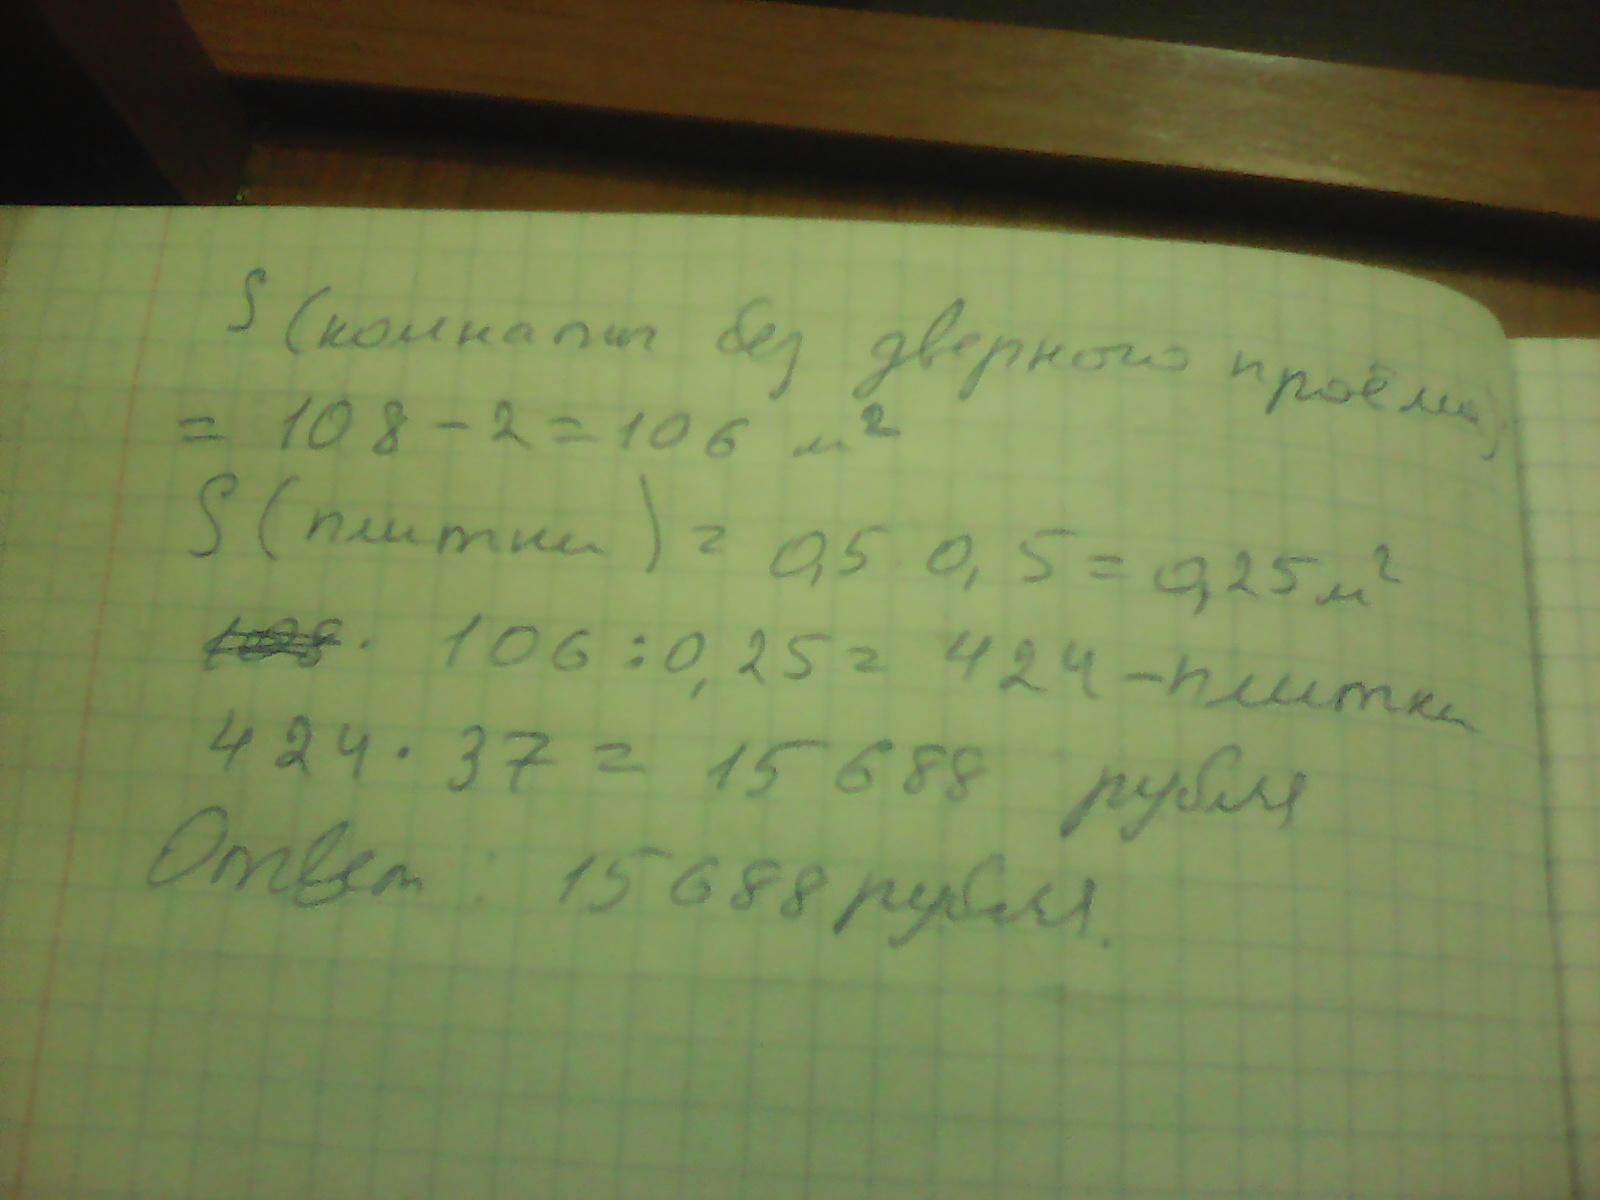 S (комнаты без дверного проёма)
= 108 - 2 = 106 м²
S (плитки) = 0,5 · 0,5 = 0,25 м²
106 : 0,25 = 424 - плитки
424 · 37 = 15 688 рубля
Ответ : 15 688 рубля.